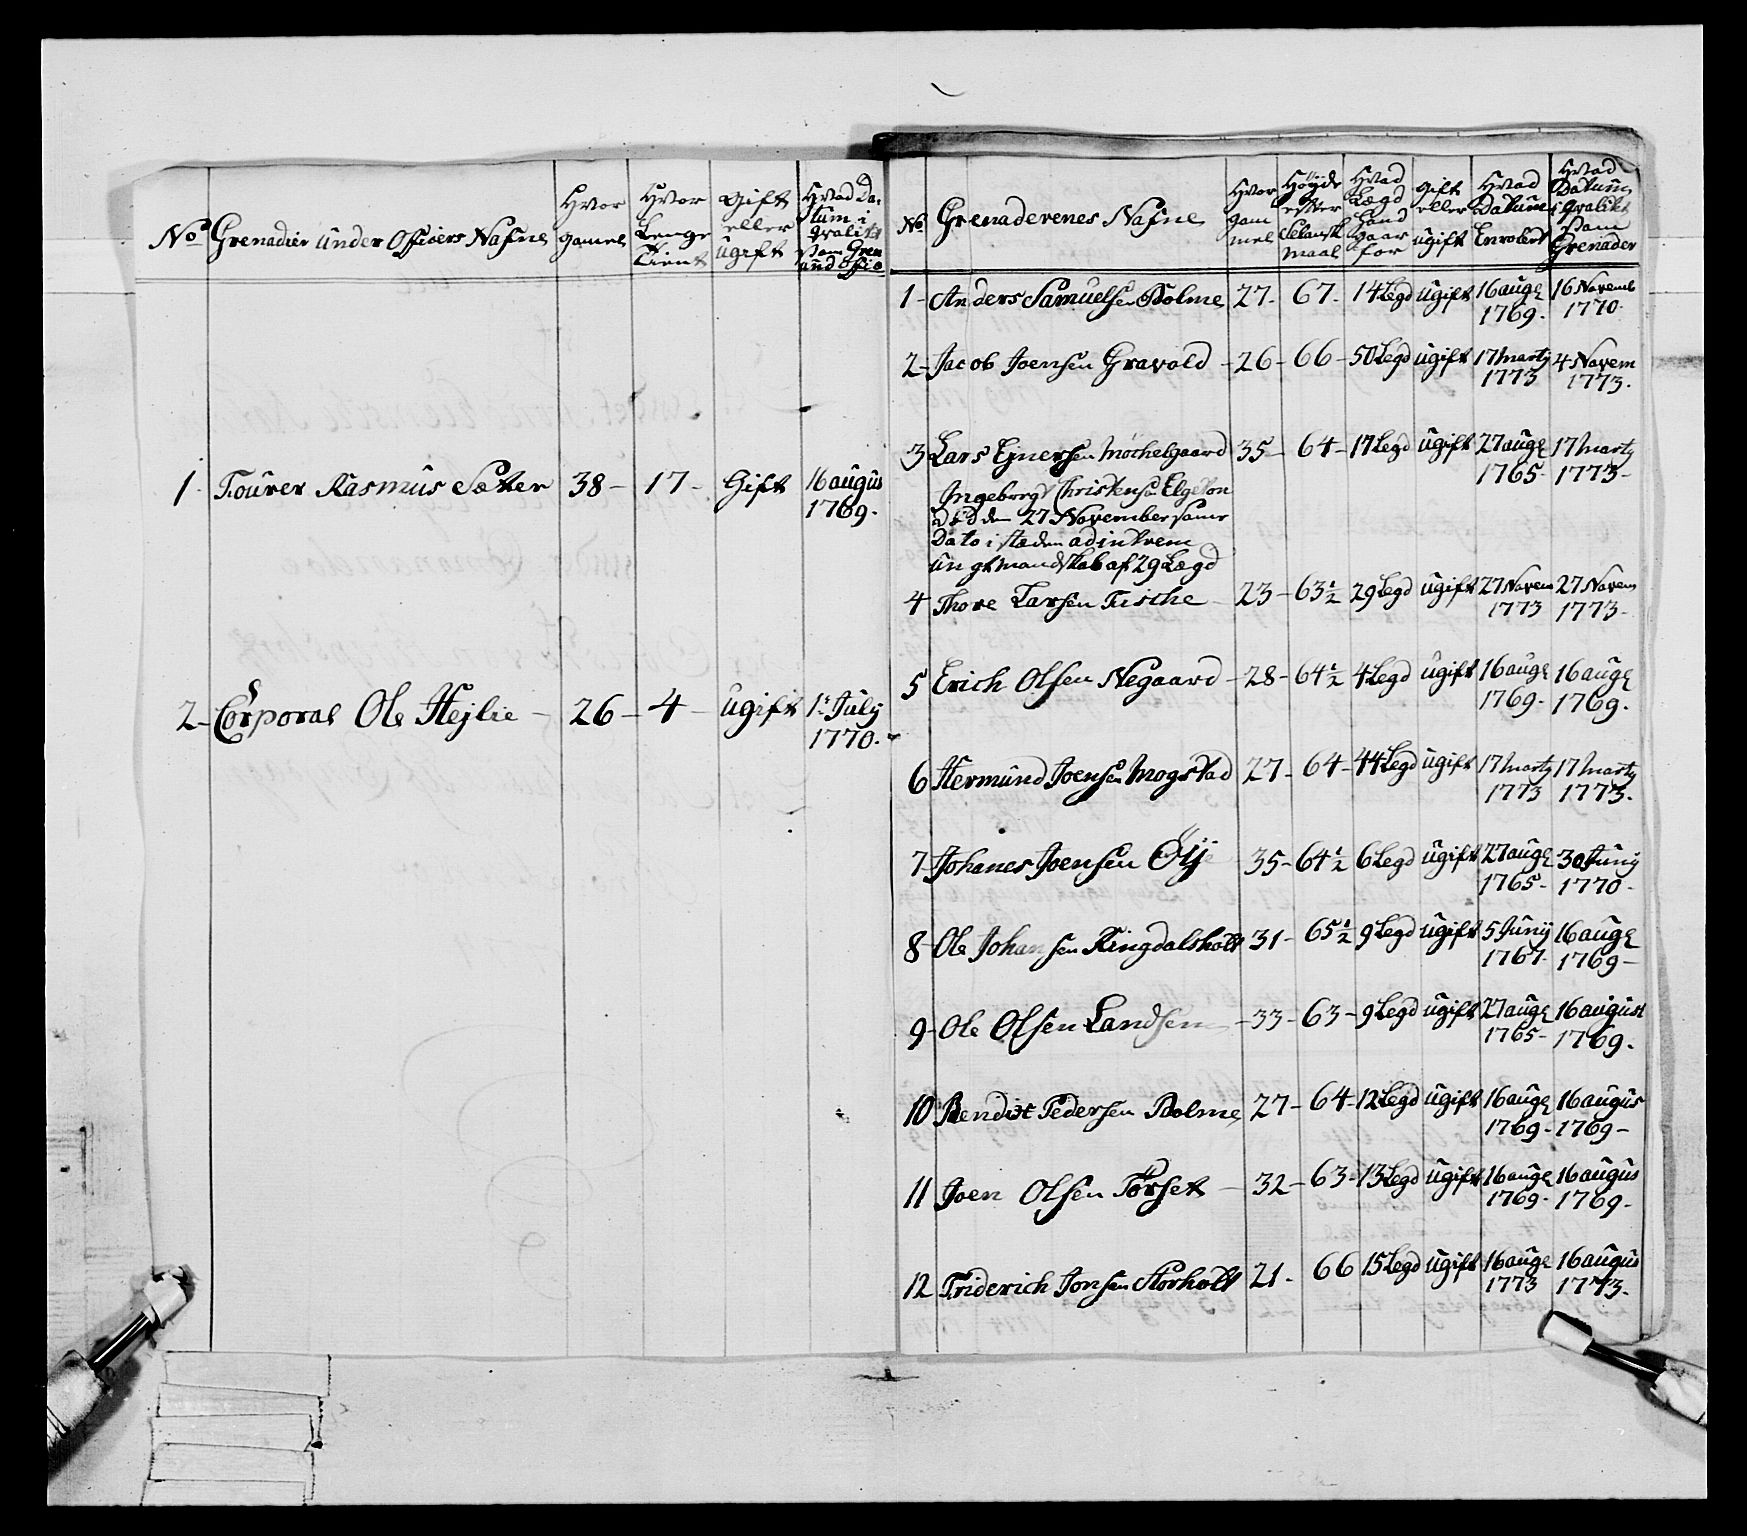 No Grenadier under Officers Nafne Hvor gamel Hvor Lenge Tient Gift eller ugift Hvad Datum i qvalitet som Gren und Offic
1 Fourer Rasmus Sæter 38 17 Gift 16 augus 1769.
2 Corporal Ole Hejlie 26 4 ugift 1te July 1770.
No Grenaderenes Nafne Hvor gammel Höyde efter Selanst maal Hvad Lægd Hand Staar for gift eller ugift Hvad Datum Enrolert Hvad Datum i qvalitet som Grenader
1 Anders Samuelsen Bolme 27 67 14 Legd ugift 16 aug 1769. 16 Novemb 1770
2 Jacob Joensen Gravold 26 66 50 Legd ugift 17 marty 1773 4 Novem 1773.
3 Lars Ejnersen Möchelgaard 35 64 17 Legd ugift 27 aug 1765 17 marty 1773
Ingeborgt Christens: Elgeton
död den 27 November samt
Dato i stæden ad interem
ungt mandskab af 29 Lægd
4 Thore Larsen Fische 23 63½ 29 Legd ugift 27 Novem 1773 27 Novem 1773
5 Erich Olsen Negaard 28 64½ 4 Legd ugift 16 aug 1769. 16 aug 1769.
6 Hermund Joensen Mogstad 27 64 44 Legd ugift 17 marty 1773 17 marty 1773.
7 Johanes Joensen Öije 35 64½ 6 Legd ugift 27 aug 1765 30 Juny 1770
8 Ole Johansen Ringdalsholt 31 65½ 9 Legd ugift 5 Junij 1767 16 aug 1769
9 Ole Olsen Landsem 33 63 9 Legd ugift 27 aug 1765 16 august 1769.
10 Bendixt Pedersen Bolme 27 64 12 Legd ugift 16 aug 1769 16 augus 1769
11 Joen Olsen Törset 32 63 13 Legd ugift 16 aug 1769 16 augus 1769
12 Friderich Jonsen Storholt 21 66 15 Legd ugift 16 aug 1773 16 augus 1773.